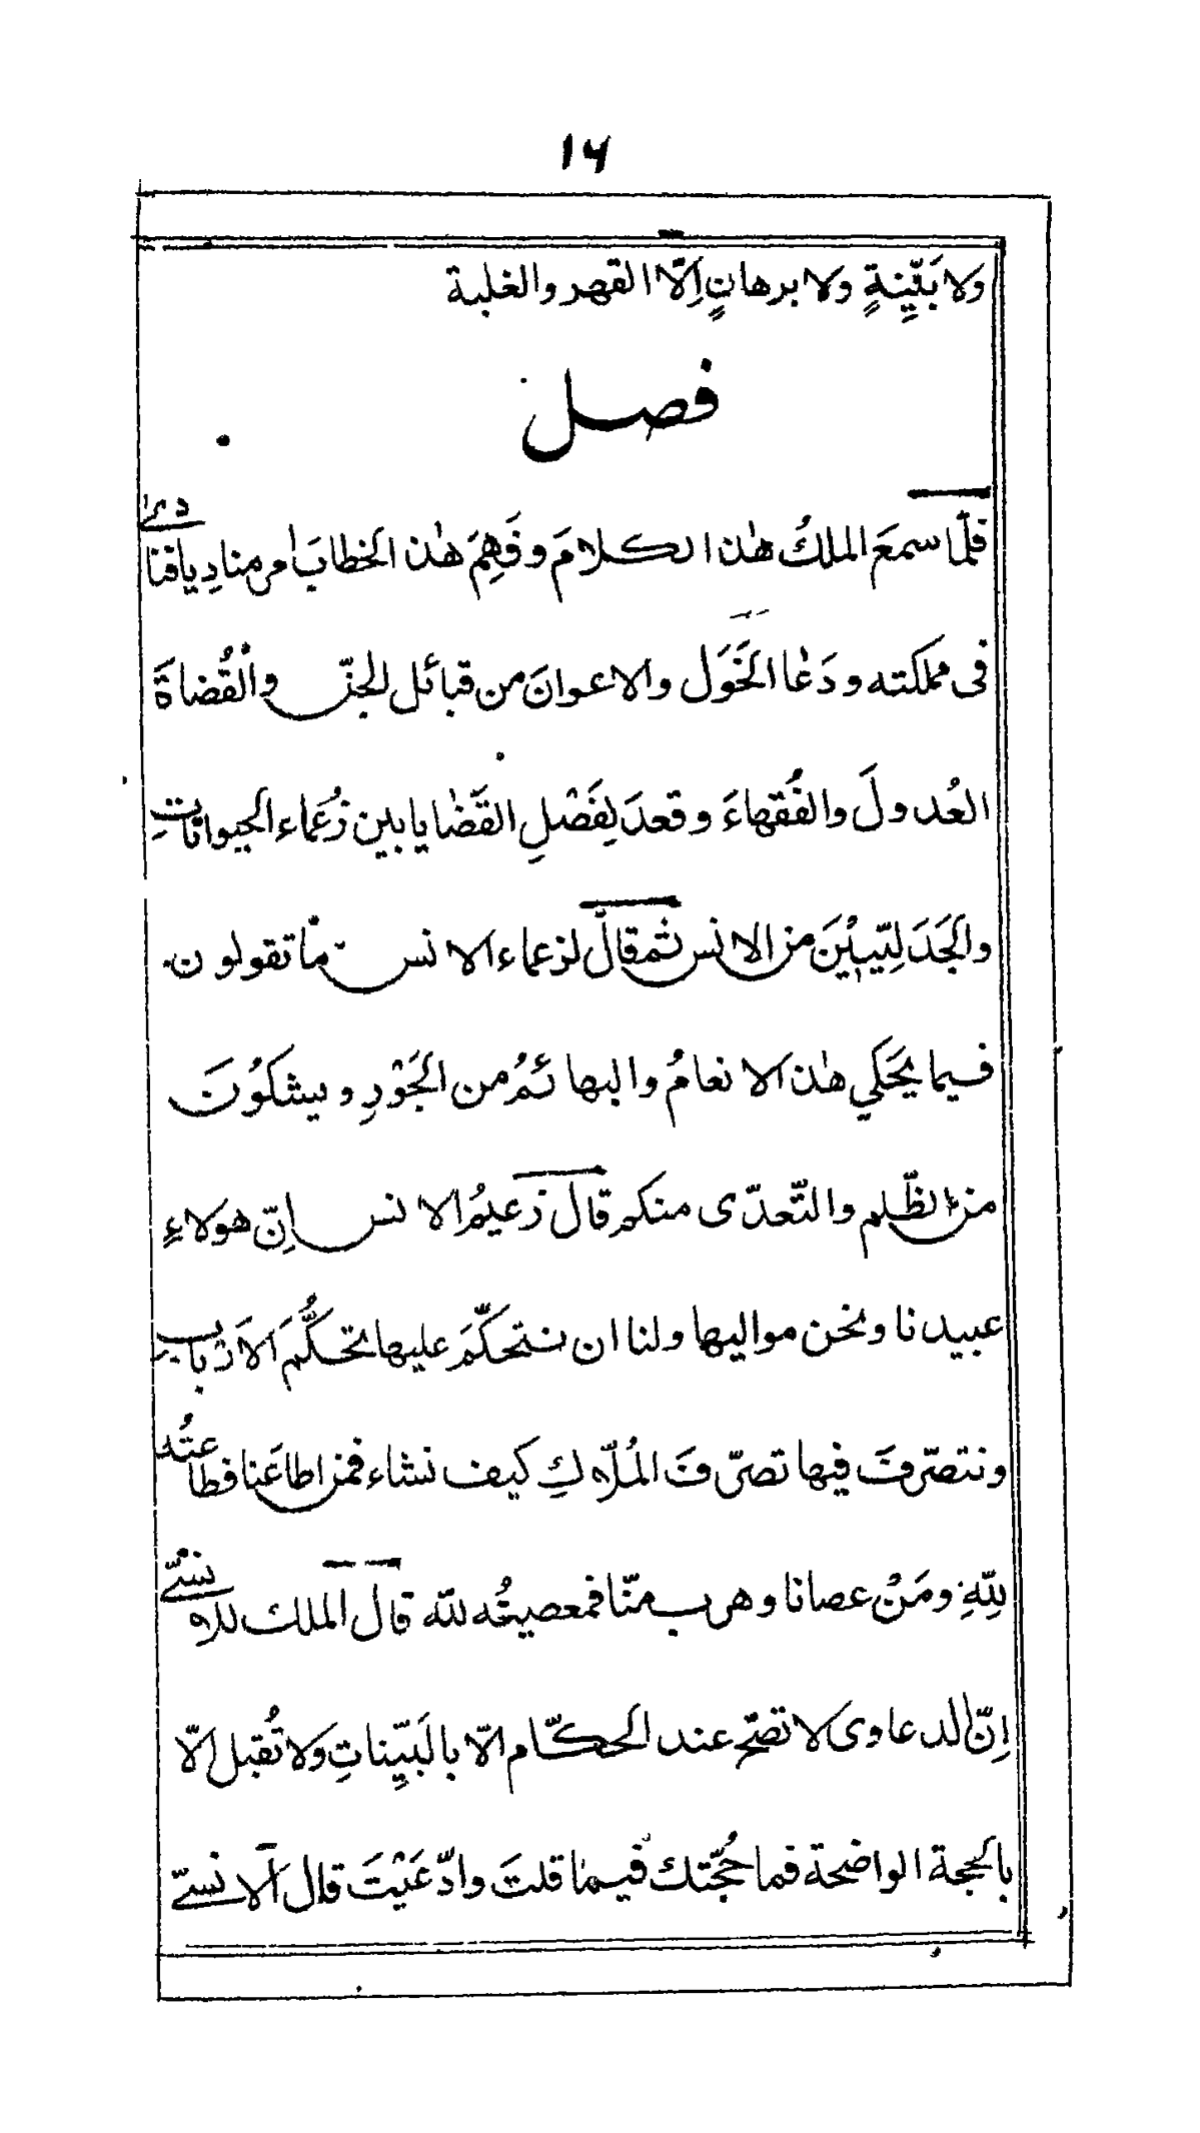 ۱۴
ولا بَيِّنِةٍ ولا برهانٍ اِلّا القهر والغلبة
فصل
فلمّا سمعَ الملكُ هٰذا الكلامَ وفَهِمَ هٰذا الخطابَ امر مناديا فنادىٰ
فى مملكته ودَعٰا الخَوَل والاعوانَ من قبائل الجنّ والْقُضاةَ
العُدولَ والفُقهاءَ وقعدَ لِفَصْلِ القَضٰايا بين زُعَماء الحيوانٰاتِ
والجَدَلِيّيْنَ من الانس ثم قال لزعماء الانس مٰا تقولون
فيما يَحكي هٰذه الانعامُ والبهائمُ من الجَوْرِ ويشكوُنَ
من الظّلم والتّعدّى منكم قال زعيمُ الانس اِنّ هولاءِ
عبيدنا ونحن مواليها ولنا ان نتحكّمَ عليها تحكُّمَ الاَربابِ
ونتصرّفَ فيها تصرّفَ المُلّاكِ كيف نشاء فمن اطاعَنا فطاعتُه
لِلّهِ ومَنْ عصانا وهرب منّا فمعصيتُه للّه قال الملك للانسّى
اِنّ الدعاوى لا تصحّ عند الحكّام الّا بالبَيِّناتِ ولا تُقبل الّا
بالحجة الواضحة فما حُجّتك فيمٰا قلتَ وادّعَيْتَ قال الانسّى